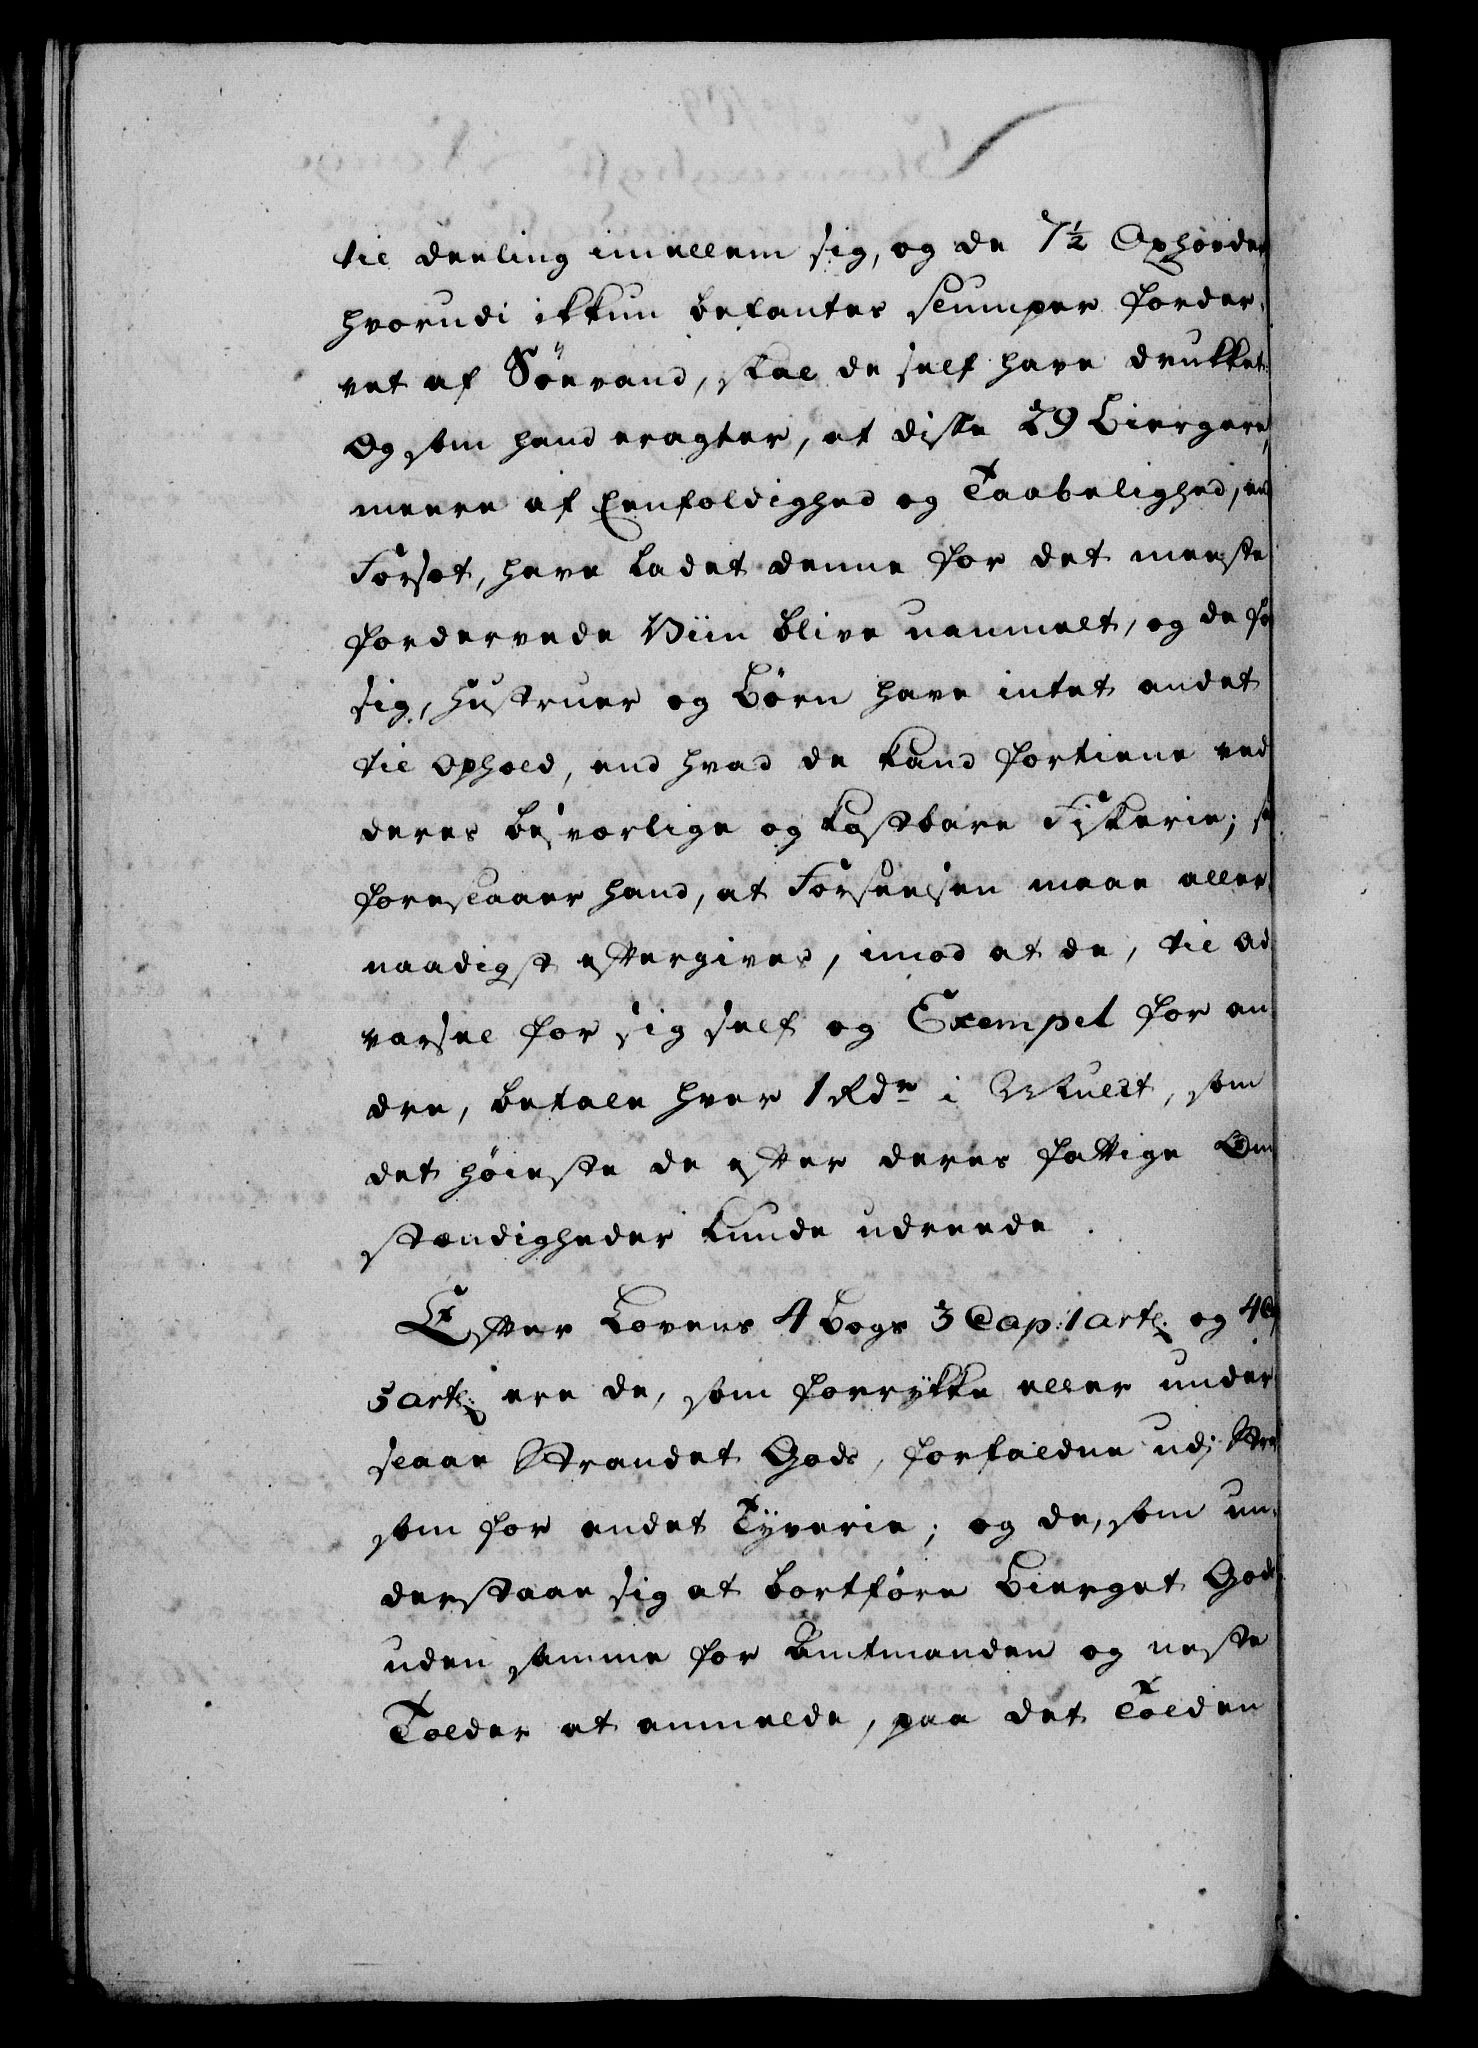 til deeling imellem sig, og de 7½ Oxhoveder
hvorudi ikkun befantes slumper forder-
vet af Söevand, skal de self have drukket:
Og som hand eragter, at disse 29 Biergere,
meere af Eenfoldighed og Taabelighed, end
Forsæt, have ladet denne for det meeste
fordervede Viin blive uanmelt, og de for
sig, Hustruer og Börn have intet andet
til Ophold, end hvad de kand fortiene ved
deres besværlige og kostbare Fiskerie; saa
foreslaaer hand, at Forseelsen maae aller-
naadigst eftergives, imod at de, til Ad-
varsel for sig self og Exempel for an-
dre, betale hver 1 Rdr i Mulct, som
det höieste de efter deres fattige Om-
stændigheder kunde udreede.
Efter Lovens 4 Bogs 3 Cap: 1 artl: og 4 Cap
5 artl: ere de, som forrykke eller under-
slaae Strandet Gods, forfaldne udj Straf
som for andet Tyverie; og de, som un-
derstaae sig at bortföre Bierget Gods
uden samme for Amtmanden og neste
Tolder at anmelde, paa det Tolden